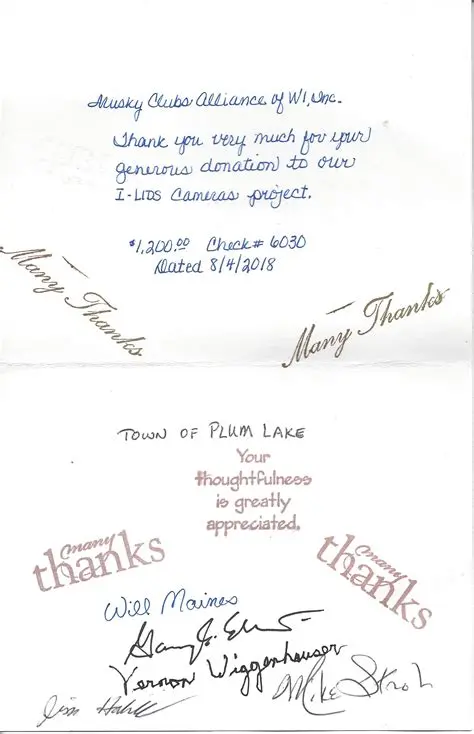 Musky Clubs Alliance of WI, Inc.
Thank you very much for your
generous donation to our
I-LIDS Cameras project.
$1,200.00 Check# 6030
Dated 8/4/2018
Many Thanks
Many Thanks
TOWN OF PLUM LAKE
Your
thoughtfulness
is greatly
appreciated.
many
thanks
many
thanks
Will Maines
Vernon Wiggenhauser
Mike Stroh
Jim